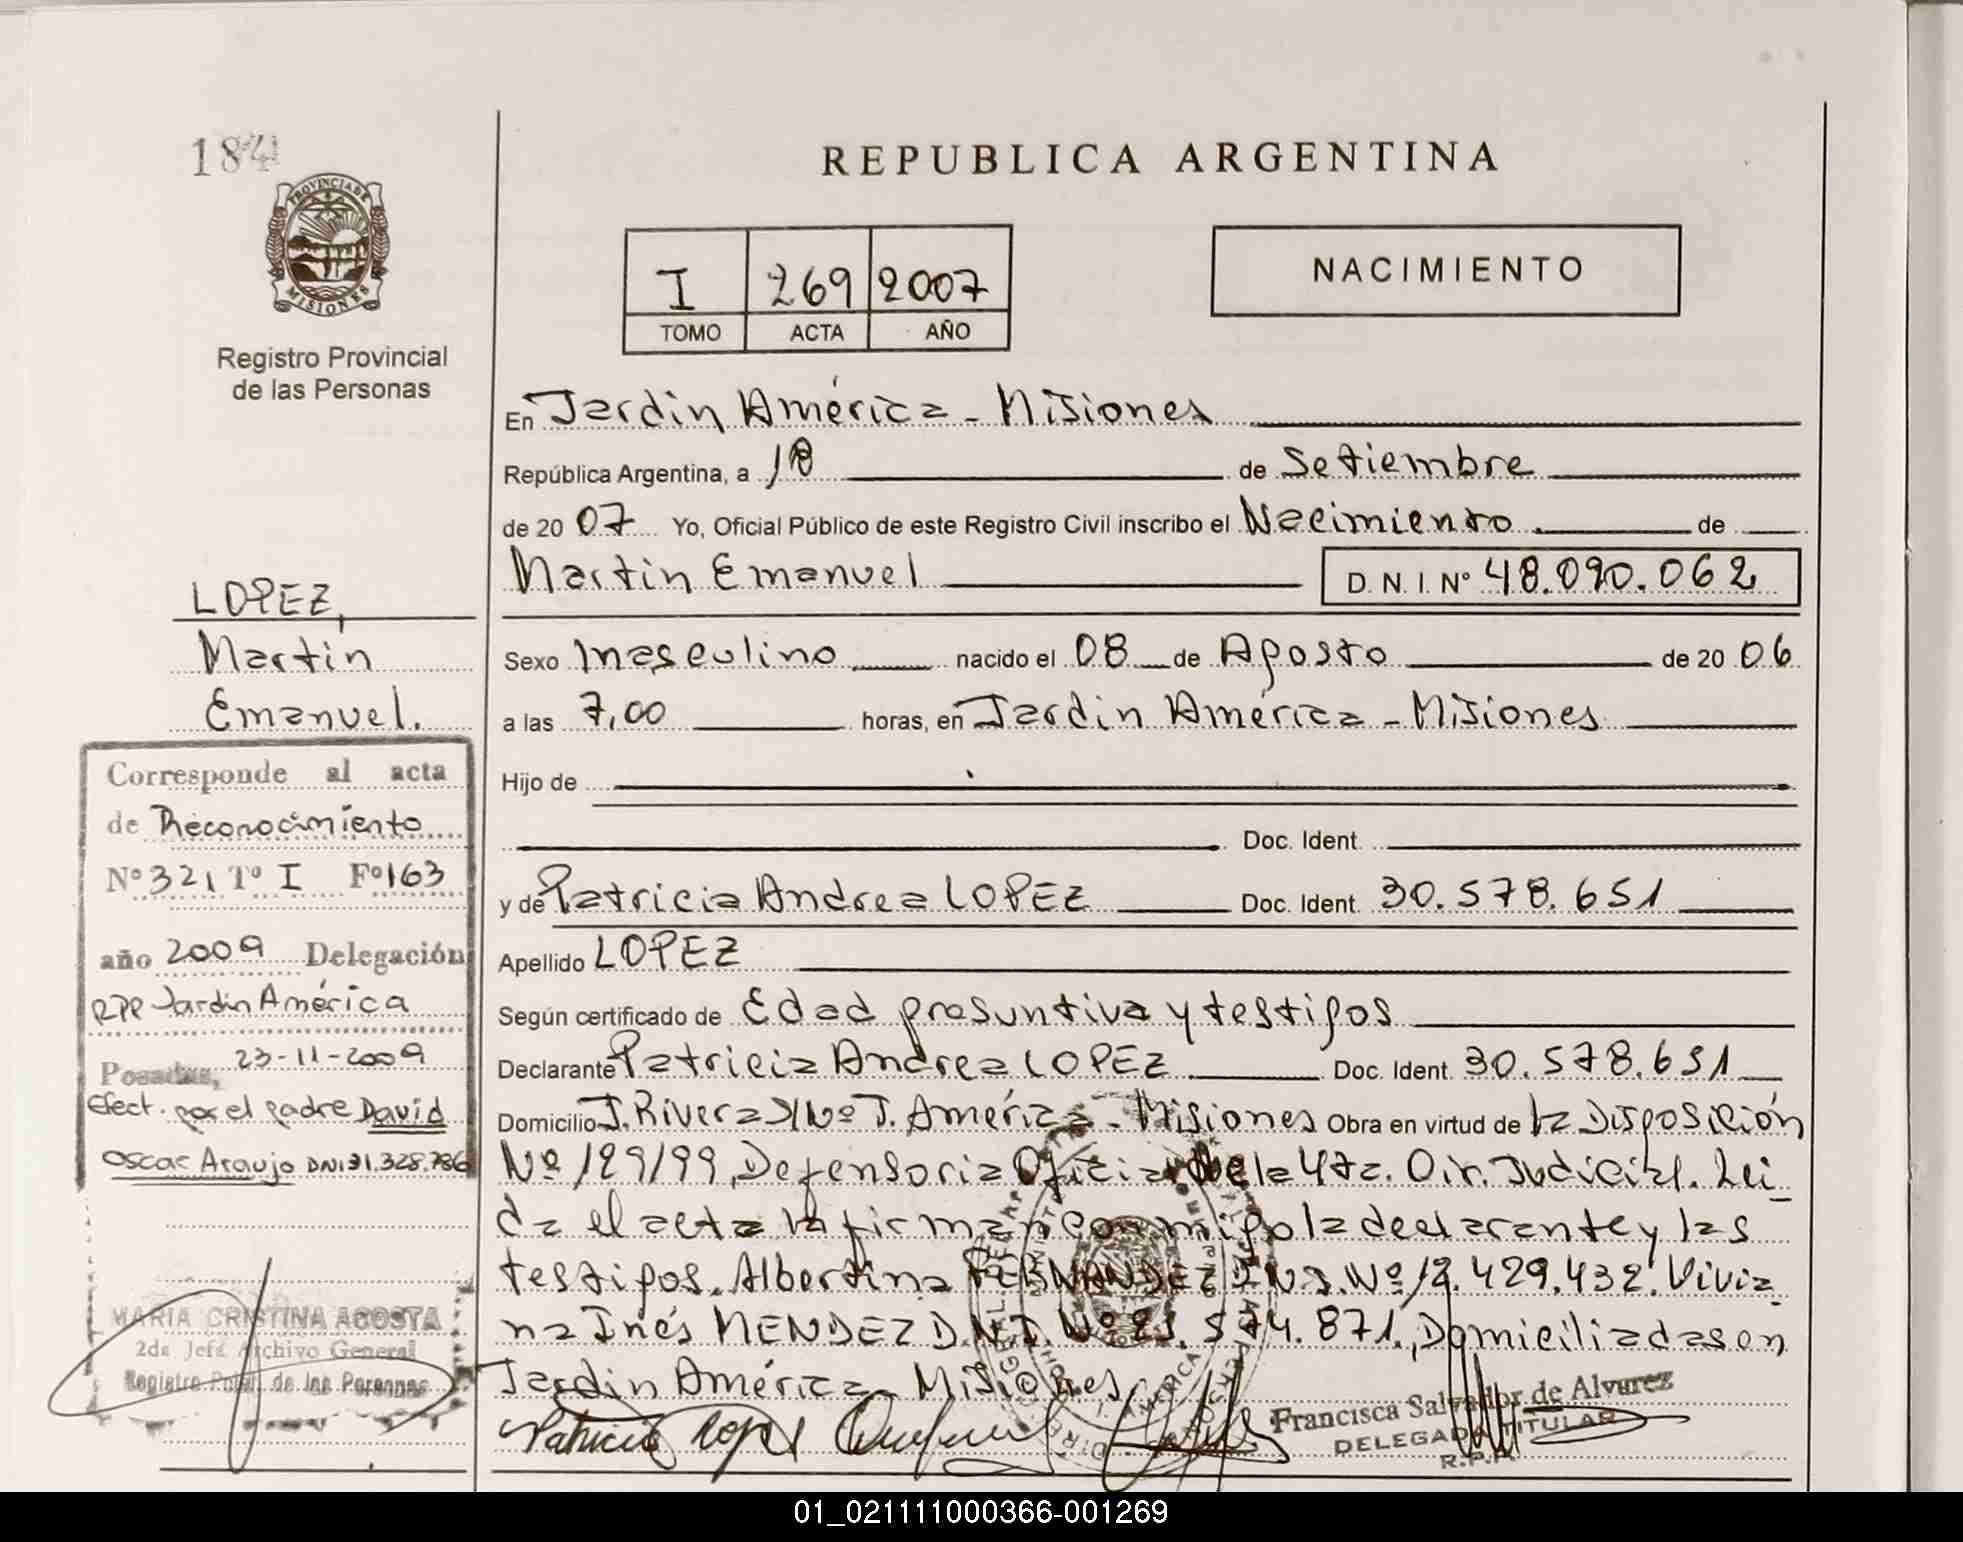 184
PROVINCIA DE
MISIONES
Registro Provincial
de las Personas
REPUBLICA ARGENTINA
I 269 2007
TOMO ACTA AÑO
NACIMIENTO
En Jardin América - Misiones
República Argentina, a 18 de Setiembre
de 20 07 Yo, Oficial Público de este Registro Civil inscribo el Nacimiento de
Martin Emanuel D.N.I. Nº 48.090.062
Sexo masculino nacido el 08 de Agosto de 20 06
a las 7,00 horas, en Jardin América - Misiones
Hijo de
Doc. Ident.
y de Patricia Andrea LOPEZ Doc. Ident. 30.578.651
Apellido LOPEZ
Según certificado de Edad presuntiva y testigos
Declarante Patricia Andrea LOPEZ Doc. Ident. 30.578.651
Domicilio J. Rivera S/Nº J. América - Misiones Obra en virtud de la Disposición
Nº 129/99, Defensoria Oficial de la 4ta. Cir. Judicial. Lei_
da el acta la firman conmigo la declarante y las
testigos. Albertina FERNANDEZ D.N.I. Nº 12.429.432. Vivia_
na Inés MENDEZ D.N.I. Nº 21.574.871., Domiciliadas en
Jardin América - Misiones
Patricia Lopez
Francisca Salvador de Alvarez
DELEGADA TITULAR
R.P.P.
LOPEZ,
Martin
Emanuel.
Corresponde al acta
de Reconocimiento
Nº 321 Tº I Fº 163
año 2009 Delegación
RPP Jardin América
Posadas, 23-11-2009
Efect. por el padre David
Oscar Araujo DNI 31.328.786
MARIA CRISTINA ACOSTA
2da Jefe Archivo General
Registro Pcial. de las Personas
01_021111000366-001269